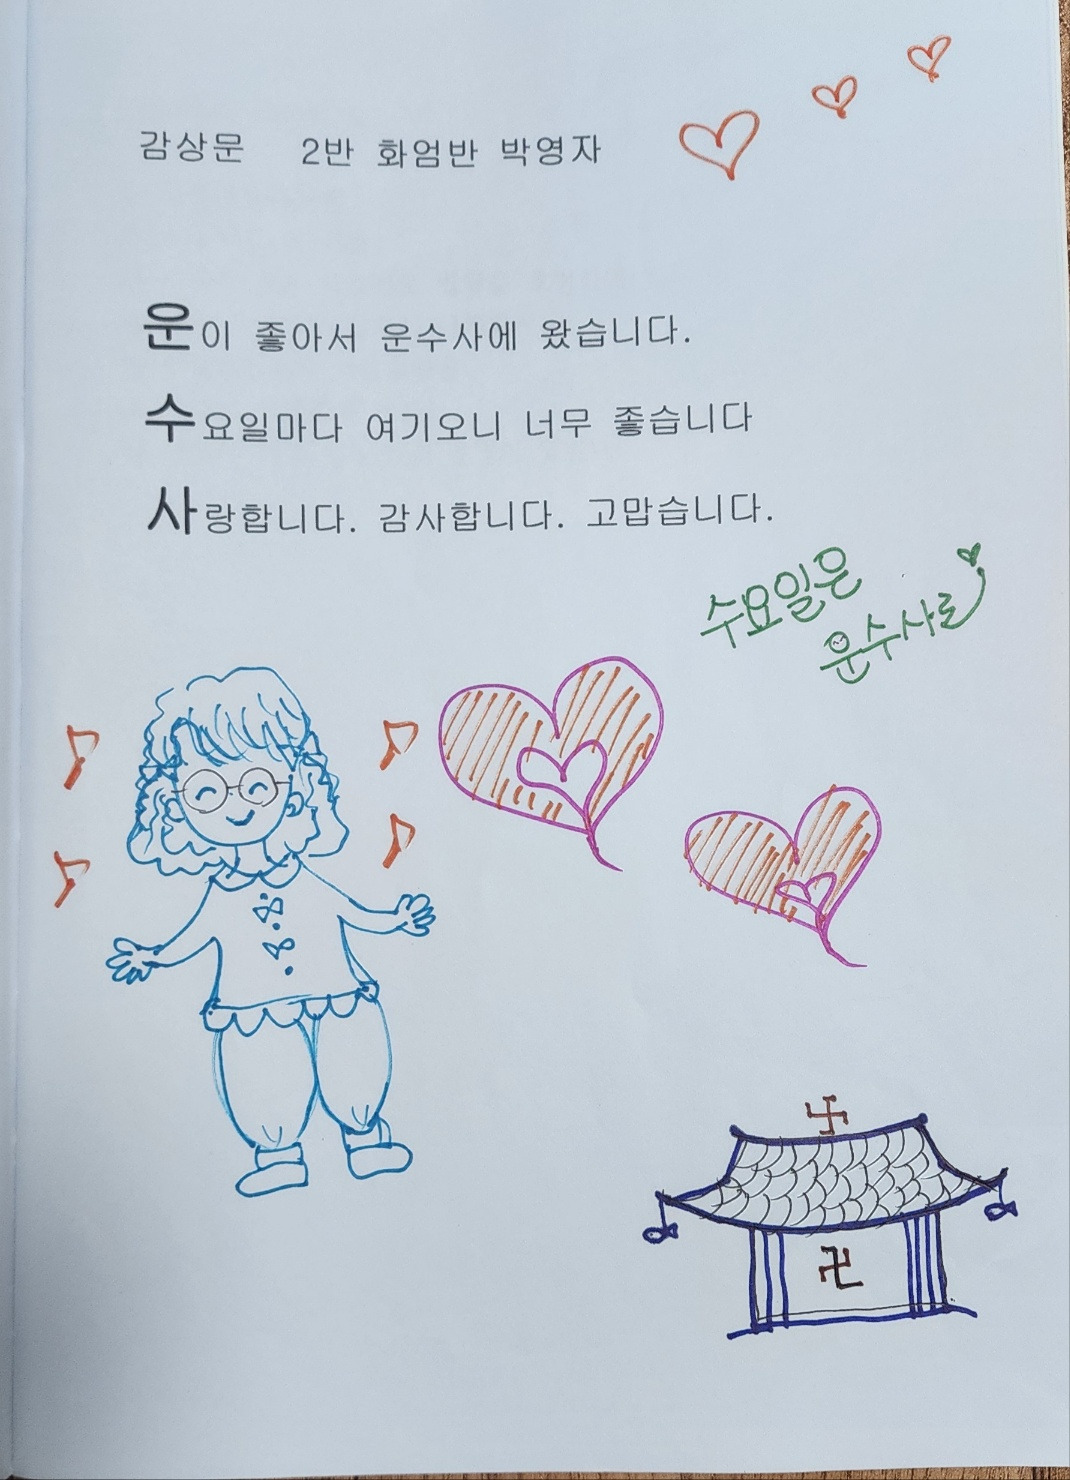 감상문 2반 화엄반 박영자
운이 좋아서 운수사에 왔습니다.
수요일마다 여기오니 너무 좋습니다
사랑합니다. 감사합니다. 고맙습니다.
수요일은
운수사로
卐
卍